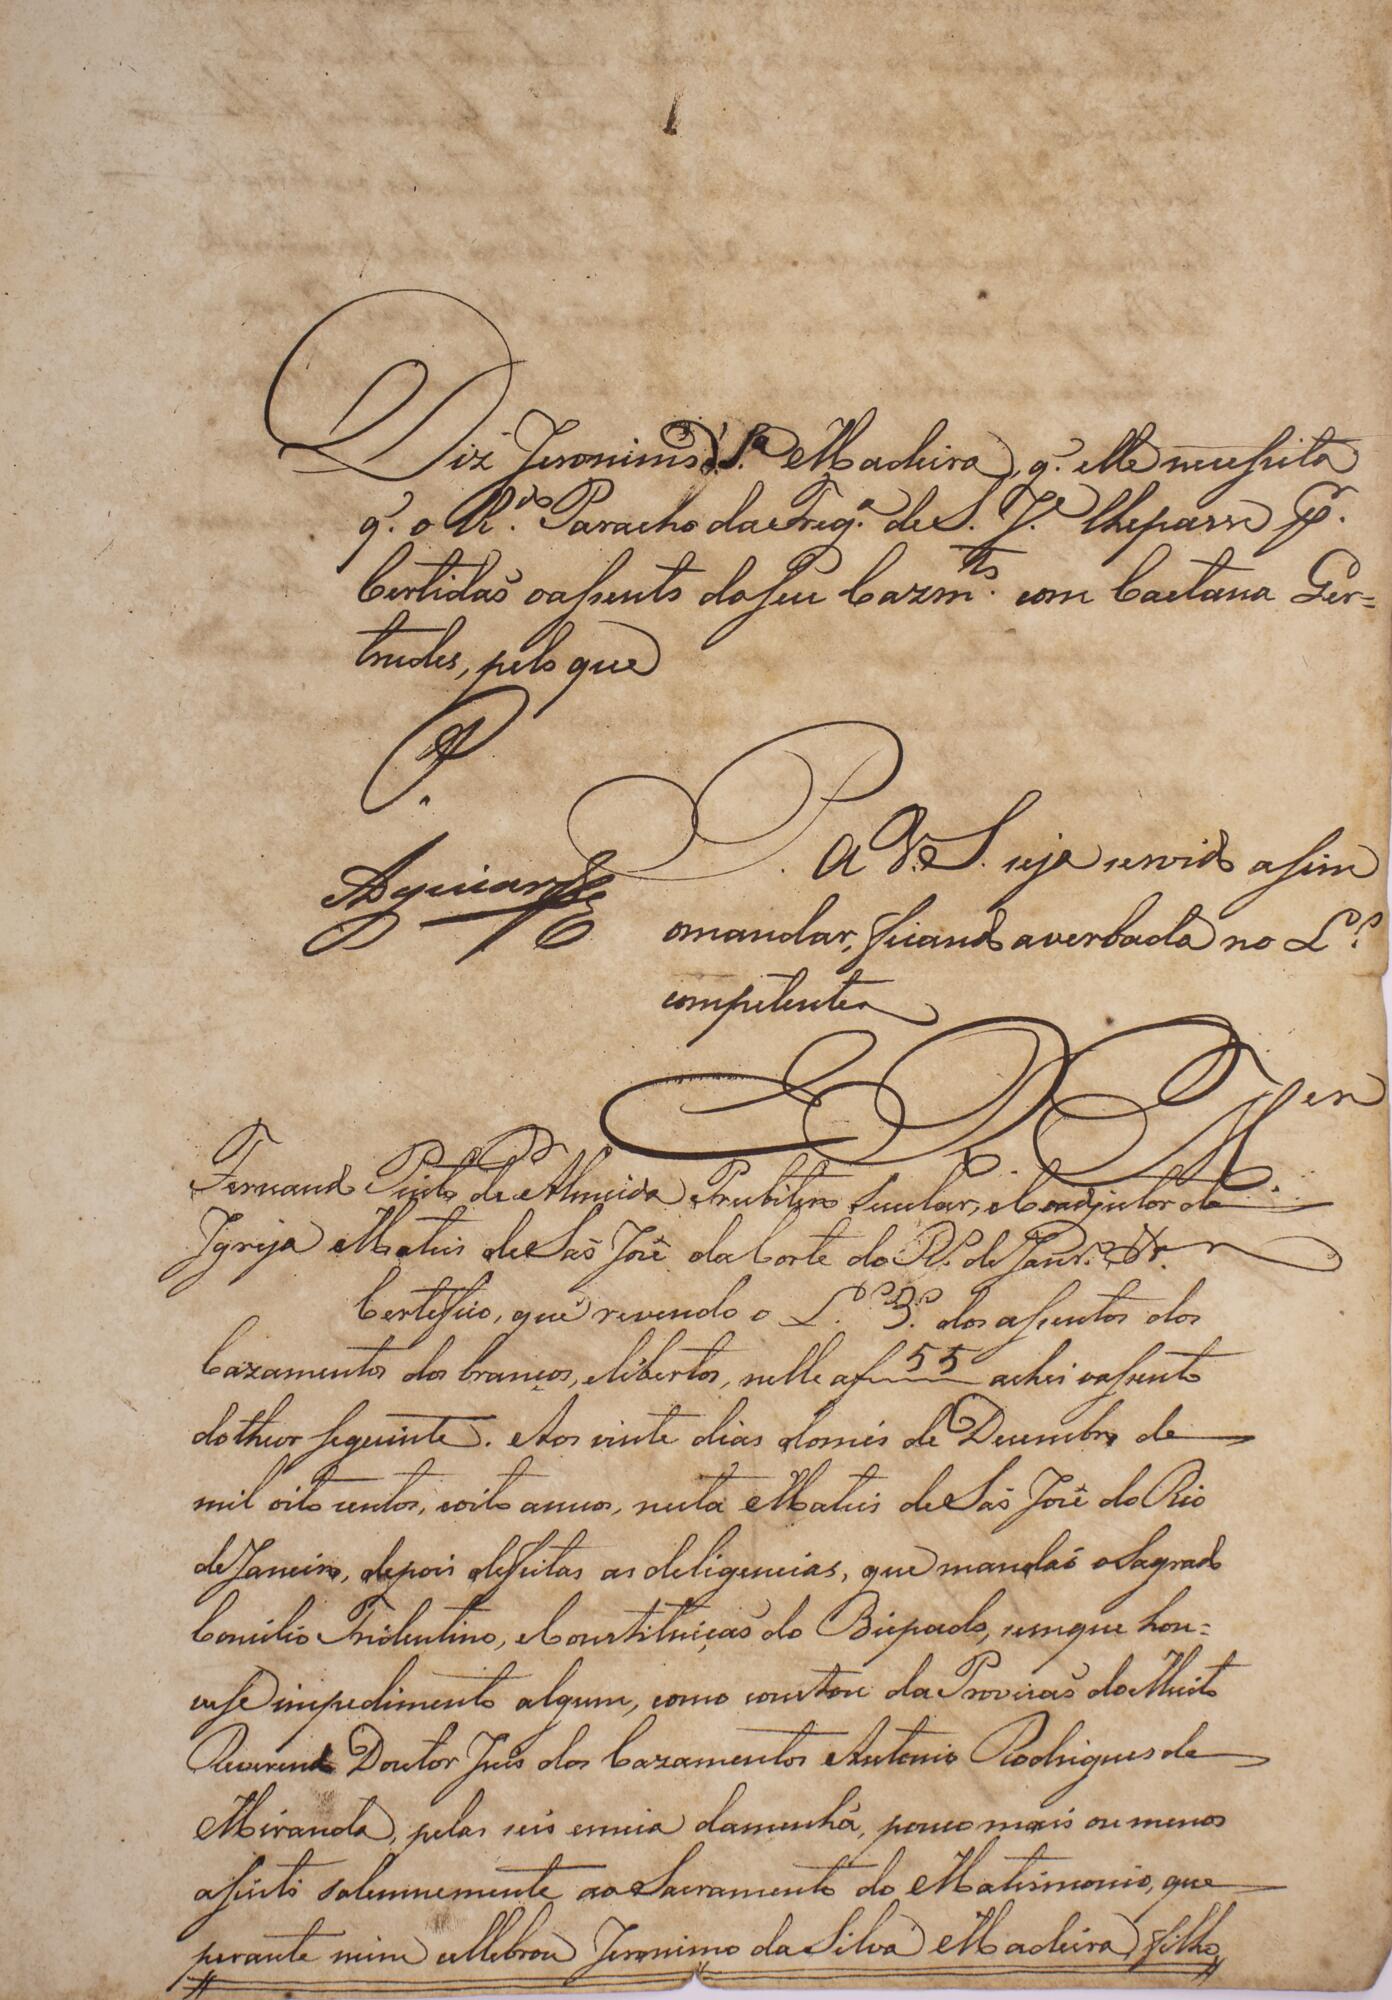 Diz Jeronimo da S.ª Madeira, q. elle necessita
q. o R.do Paracho da Freg.ª de S. J.e lhe passe p.
Certidaõ o assento do seu Cazm.to com Caetana Ger=
trudes, pelo que
P.
P. a V. S. seja servido assim
Aguiar
o mandar, ficando averbada no L.º
competente
E. R. M.ce
Fernando Pinto de Almeida Presbitero Secular, e Coadjutor da
Igreja Matris de Saõ Josê da Corte do R. de Janr.º &r.
Certifico, que revendo o L.º 3.º dos assentos dos
Cazamentos dos brancos, e libertos, nelle a f 55 achei o assento
do theor seguinte. Aos vinte dias do mes de Decembro de
mil oito centos, e oito annos, nesta Matris de Saõ Josê do Rio
de Janeiro, depois de feitas as deligencias, que manda o Sagrado
Concilio Tridentino, e Constituiçaõ do Bispado, sem que hou=
vesse impedimento algum, como constou da Provizaõ do Muito
Reverendo Doutor Juis dos Cazamentos Antonio Rodrigues de
Miranda, pelas seis e meia da menhã, pouco mais ou menos
assisti solemnemente ao Sacramento do Matrimonio, que
perante mim cellebrou Jeronimo da Silva Madeira, filho